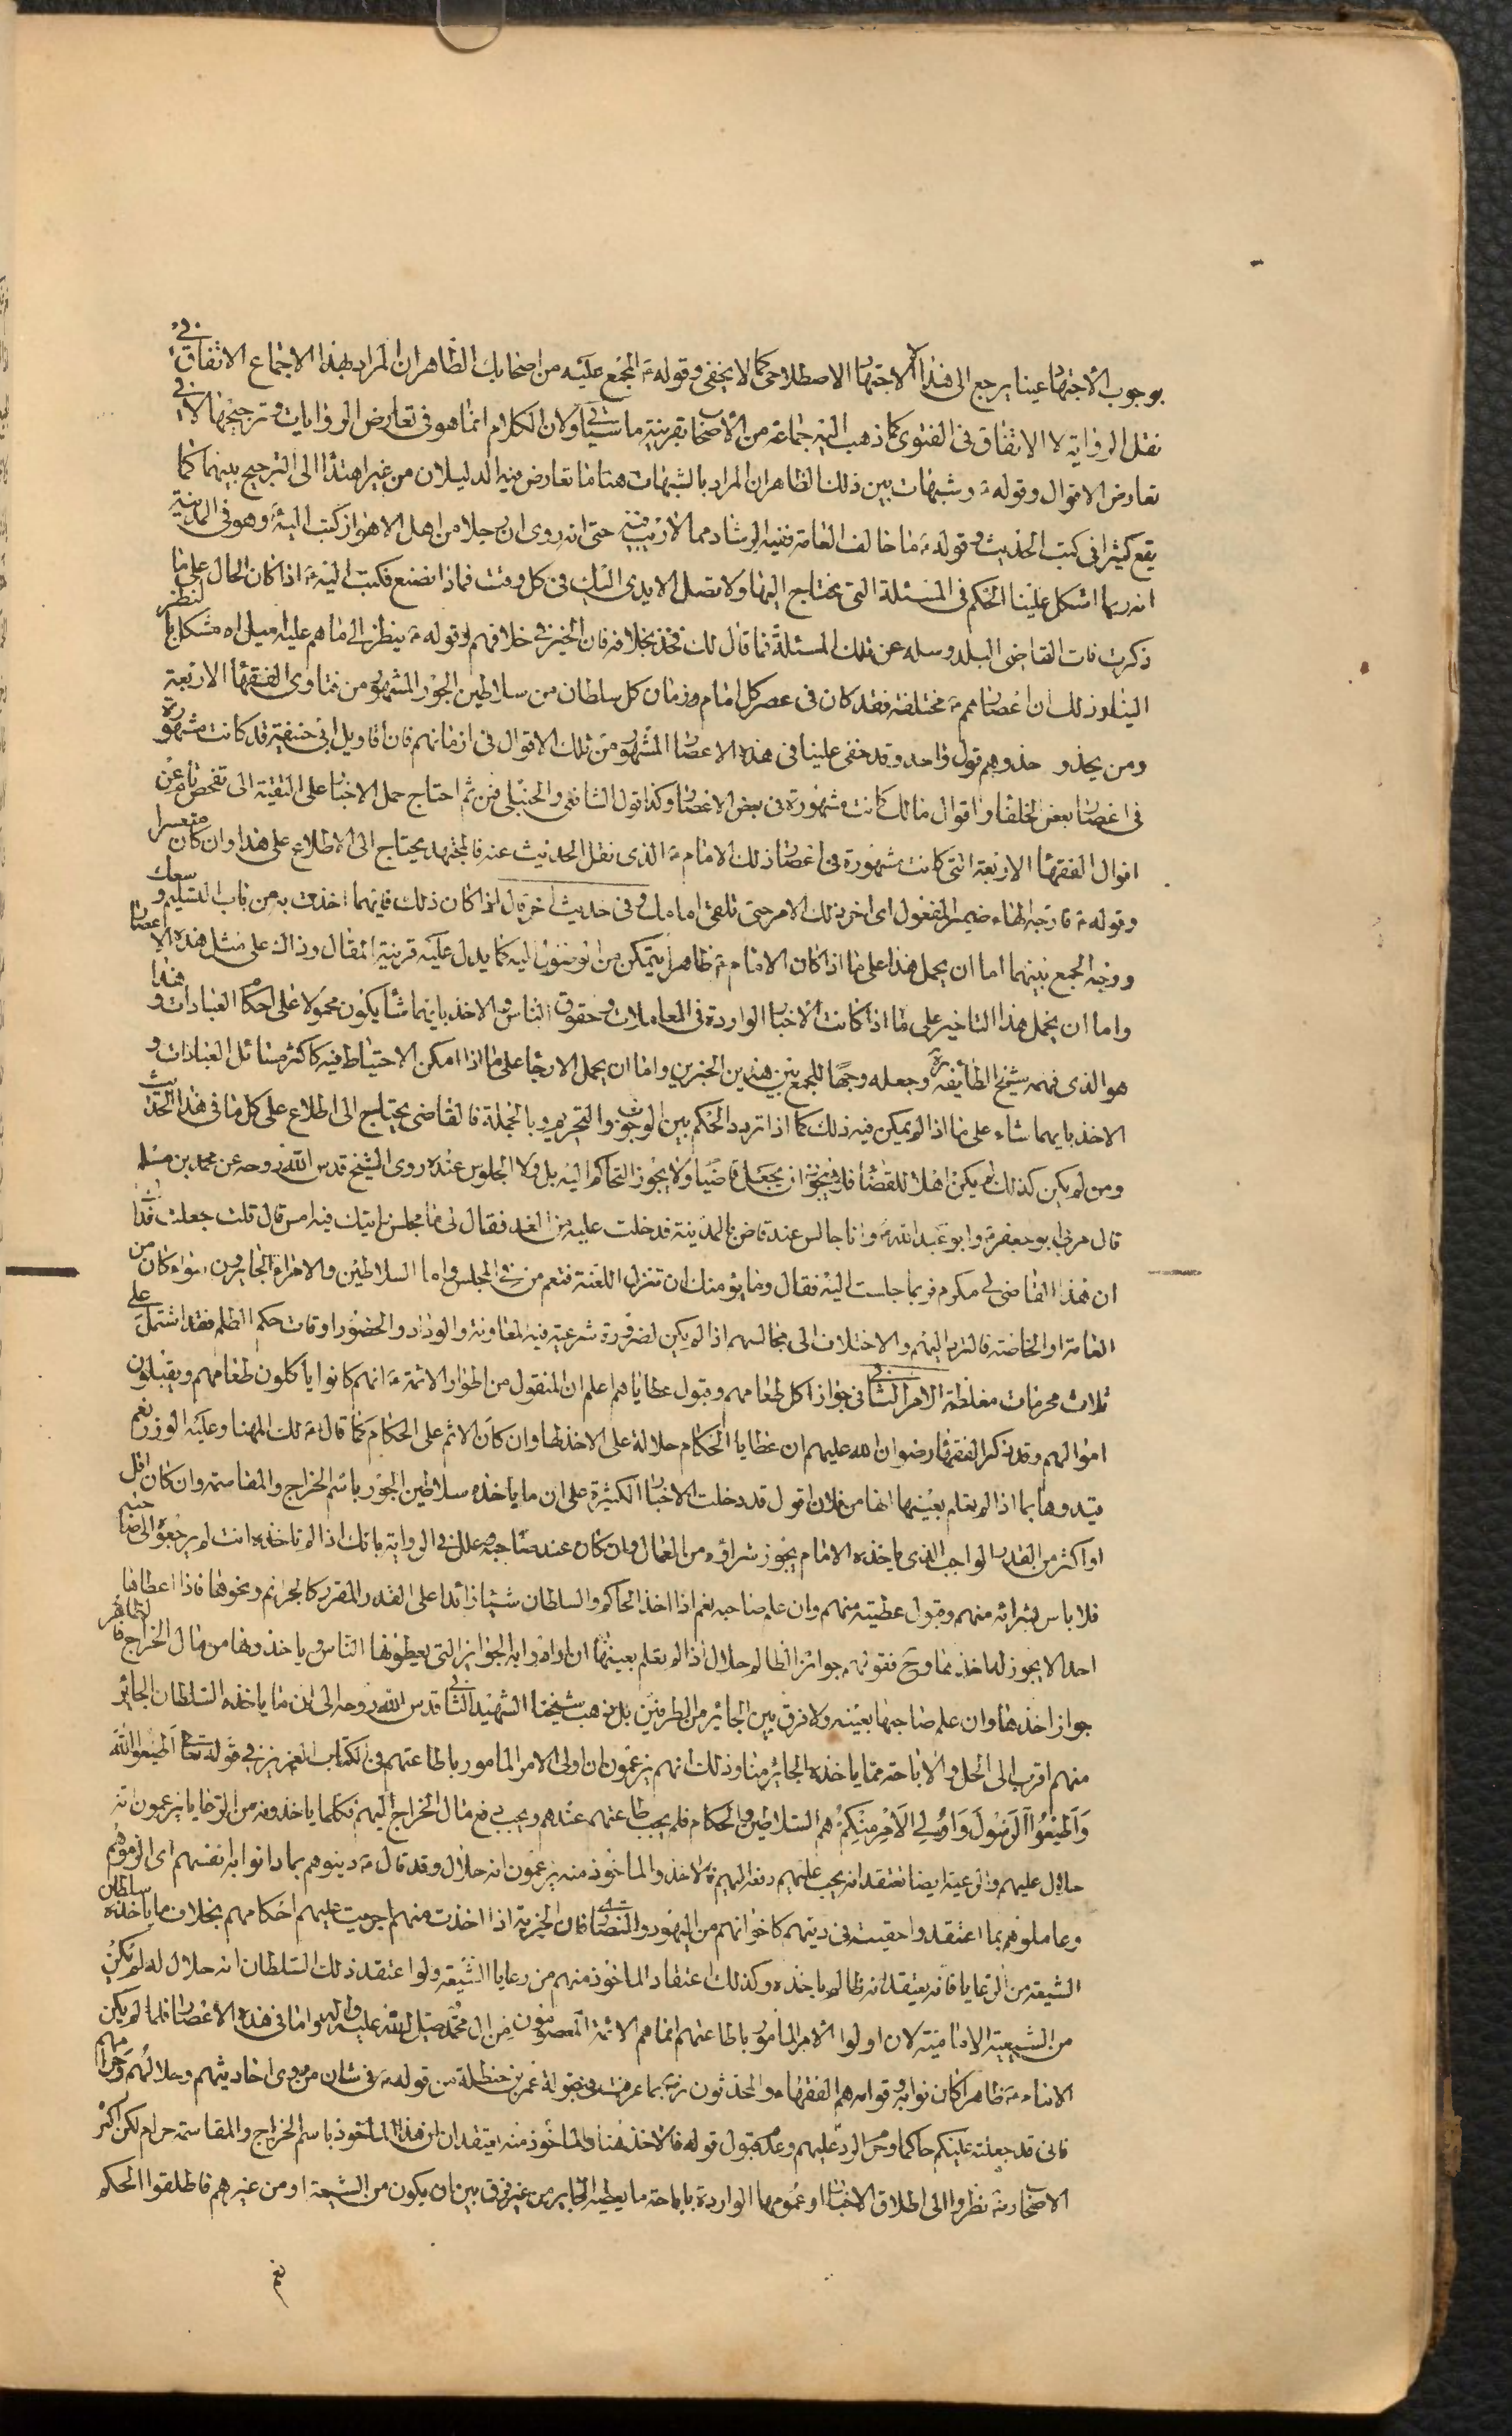 بوجوب الاجتهاد عينا يرجع الى هذا لا الاجتهاد الاصطلاحى كما لا يخفى وقوله ع المجمع عليه من اصحابك الظاهر ان المراد بهذا الاجماع الاتفاق فى
نقل الرواية لا الاتفاق فى الفتوى كما ذهب اليه جماعة من الاصحاب بقرينة ما سيأتى ولان الكلام انما هو فى تعارض الروايات وترجيحها لا فى
تعارض الاقوال وقوله ع وشبهات بين ذلك الظاهر ان المراد بالشبهات هنا ما تعارض فيه الدليلان من غير اهتداء الى الترجيح بينهما كما
يقع كثيرا فى كتب الحديث وقوله ع ما خالف العامة ففيه الرشاد مما لا ريب فيه حتى انه روى ان رجلا من اهل الاهواز كتب اليه ع وهو فى المدينة
انه ربما اشكل علينا الحكم فى المسئلة التى نحتاج اليها ولا تصل الايدى اليك فى كل وقت فماذا نصنع فكتب اليه ع اذا كان الحال على ما
ذكرت فات القاضى البلد وسله عن تلك المسئلة فما قال لك فخذ بخلافه فان الخير فى خلافهم وقوله ع ينظر الى ما هم عليه ميل اه مشكل بالنظر
الينا وذلك ان اعصارهم ع مختلفة فقد كان فى عصر كل امام وزمان كل سلطان من سلاطين الجور المشهور من فتاوى الفقهاء الاربعة
ومن يحذو حذوهم قول واحد وقد خفى علينا فى هذه الاعصار المشهور من تلك الاقوال فى ازمانهم فان اقاويل ابى حنيفة قد كانت مشهورة
فى اعصار بعض الخلفاء واقوال مالك كانت مشهورة فى بعض الاعصار وكذا قول الشافعى والحنبلى فمن ثم احتاج حمل الاخبار على التقية الى تفحص تام عن
اقوال الفقهاء الاربعة التى كانت مشهورة فى اعصار ذلك الامام ع الذى نقل الحديث عنه فالمجتهد يحتاج الى الاطلاع على هذا وان كان متعسرا
وقوله ع فارجه الهاء ضمير المفعول اى اخر ذلك الامر حتى تلقى امامك وفى حديث اخر قال اذا كان ذلك فايهما اخذت به من باب التسليم وسعك
ووجه الجمع بينهما اما ان يحمل هذا على ما اذا كان الامام ع ظاهرا يتمكن من الوصول اليه كما يدل عليه قرينة المقال وذاك على مثل هذه الاعصار
واما ان يحمل هذا التاخير على ما اذا كانت الاخبار الواردة فى المعاملات وحقوق الناس والاخذ بايهما شاء يكون محمولا على احكام العبادات وهذا
هو الذى فهمه شيخ الطائفة ره وجعله وجها للجمع بين هذين الخبرين واما ان يحمل الارجاء على ما اذا امكن الاحتياط فيه كاكثر مسائل العبادات و
الاخذ بايهما شاء على ما اذا لم يمكن فيه ذلك كما اذا تردد الحكم بين الوجوب والتحريم وبالجملة فالقاضى يحتاج الى اطلاع على كل ما فى هذا الحديث
ومن لم يكن كذلك لم يكن اهلا للقضاء فلا يجوز ان يجعل قاضيا ولا يجوز التحاكم اليه بل ولا الجلوس عنده روى الشيخ قدس الله روحه عن محمد بن مسلم
قال مر بى ابو جعفر ع وابو عبد الله ع وانا جالس عند قاض بالمدينة فدخلت عليه من الغد فقال لى ما مجلس رايتك فيه امس قال قلت جعلت فداك
ان هذا القاضى لى مكرم فربما جلست اليه فقال وما يؤمنك ان تنزل اللعنة فتعم من فى المجلس واما السلاطين والامراء الجايرون سواء كان من
العامة او الخاصة فالتردد اليهم والاختلاف الى مجالسهم اذا لم يكن لضرورة شرعية فيه المعاونة والوداد والحضور اوقات حكم الظلم فقد اشتمل على
ثلاث محرمات مغلظة الامر الثانى فى جواز اكل طعامهم وقبول عطاياهم اعلم ان المنقول من اطوار الائمة ع انهم كانوا ياكلون طعامهم ويقبلون
اموالهم وقد ذكر الفقهاء رضوان الله عليهم ان عطايا الحكام حلالة على الاخذ لها وان كان الاثم على الحكام كما قال ع لك المهنا وعليه الوزر نعم
قيدوها بما اذا لم يعلم بعينها انها من فلان اقول قد دخلت الاخبار الكثيرة على ان ما ياخذه سلاطين الجور باسم الخراج والمقاسمة وان كان اقل
او اكثر من القدر الواجب الذى ياخذه الامام يجوز شراؤه من العمال وان كان عند صاحبه وعلل فى الرواية بانك اذا لم تاخذه انت لم يرجعوه الى صاحبه
فلا باس بشرائه منهم وقبول عطيته منهم وان علم صاحبه نعم اذا اخذ الحاكم والسلطان شيئا زائدا على القدر المقرر كالجرائم ونحوها فاذا اعطاها
احد الا يجوز له اخذها وح فقولهم جوائز الظالم حلال اذا لم يعلم بعينها ان ارادوا به الجوايز التى يعطونها الناس وياخذونها من مال الخراج فالظاهر
جواز اخذها وان علم صاحبها بعينه ولا فرق بين الجائر من الطرفين بل ذهب شيخنا الشهيد الثانى قدس الله روحه الى ان ما ياخذه السلطان الجائر
منهم اقرب الى الحل والاباحة مما ياخذه الجائر منا وذلك انهم يزعمون ان اولى الامر المامور باطاعتهم فى الكتاب العزيز فى قوله تعالى اطيعوا الله
وَاَطيعُوا الرَسُولَ وَاُولِى الاَمْرِ مِنْكُم هم السلاطين والحكام فلم يجب طاعتهم عندهم ويجب دفع مال الخراج اليهم فكلما ياخذونه من الرعايا يزعمون انه
حلال عليهم والرعية ايضا تعتقد انه يجب عليهم دفعه اليهم فالاخذ والماخوذ منه يزعمون انه حلال وقد قال ع دينوهم بما دانوا به انفسهم اى الزموهم
وعاملوهم بما اعتقدوا حقيته فى دينهم كاخوانهم من اليهود والنصارى فان الجزية اذا اخذت منهم اجريت عليهم احكامهم بخلاف ما ياخذه سلطان
الشيعة من الرعايا فانه يعتقد انه ظالم باخذه وكذلك اعتقاد الماخوذ منهم من رعايا الشيعة ولو اعتقد ذلك السلطان انه حلال له لم يكن
من الشيعة الامامية لان اولوا الامر المامور باطاعتهم انما هم الائمة المعصومون من ال محمد صلى الله عليه واله واما فى هذه الاعصار فلما لم يكن
الامام ع ظاهرا كان نوابه وقوامه هم الفقهاء والمحدثون بما عرفت فى مقبولة عمر بن حنظلة من قوله ع فى شان من روى احاديثهم وحلالهم وحرامهم
فانى قد جعلته عليكم حاكما وحرم الرد عليهم وعدم قبول قوله فالاخذ هنا والماخوذ منه يعتقدان ان هذا الماخوذ باسم الخراج والمقاسمة حرام لكن اكثر
الاصحاب نظروا الى اطلاق الاخبار او عمومها الواردة باباحة ما يعطيه الجاير من غير فرق بين ان يكون من الشيعة او من غيرهم فاطلقوا الحكم
نعم